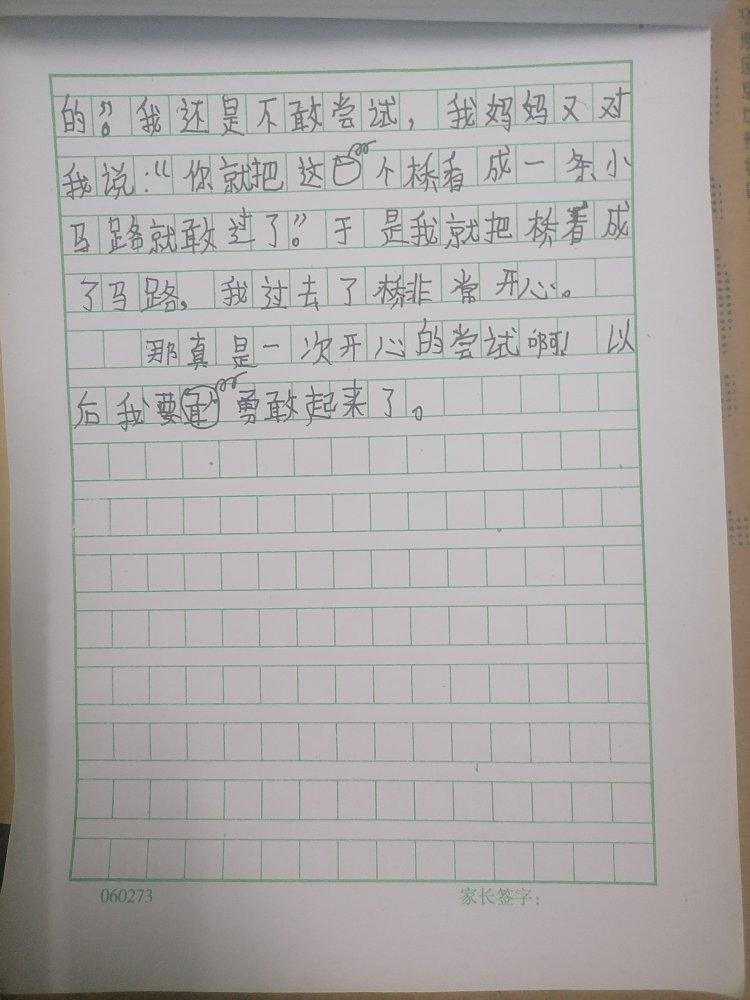 的”。我还是不敢尝试，我妈妈又对
我说：“你就把这个桥看成一条小
马路就敢过了”。于是我就把桥看成
了马路，我过去了桥非常开心。
那真是一次开心的尝试啊！以
后我要勇敢起来了。
060273 家长签字：